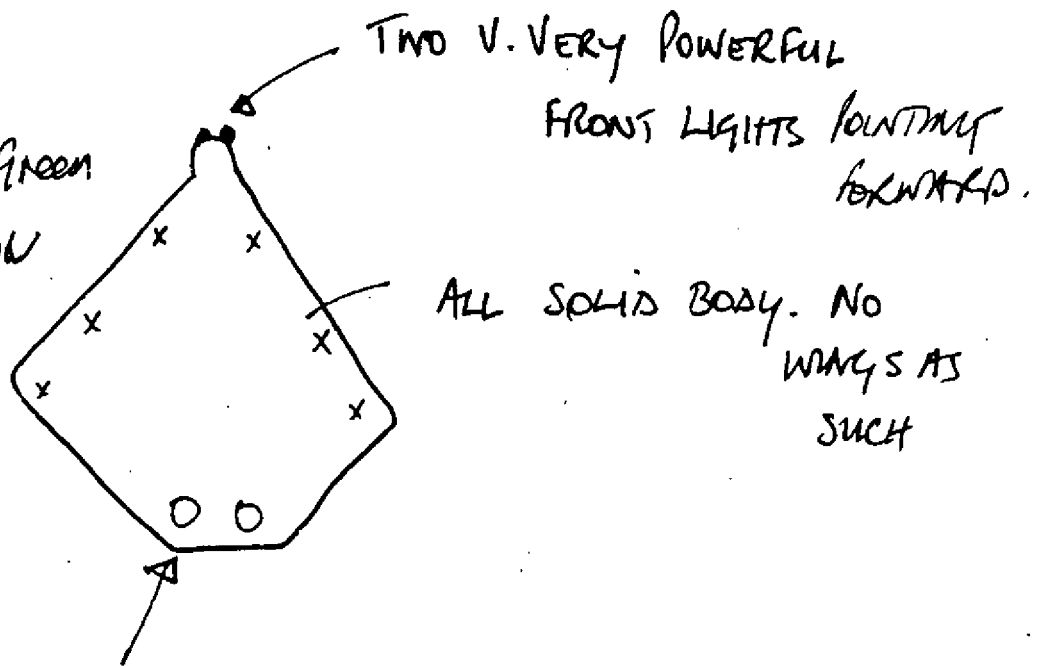 TWO V. VERY POWERFUL
FRONT LIGHTS POINTING
FORWARD.
Green
ALL SOLID BODY. NO
WINGS AS
SUCH